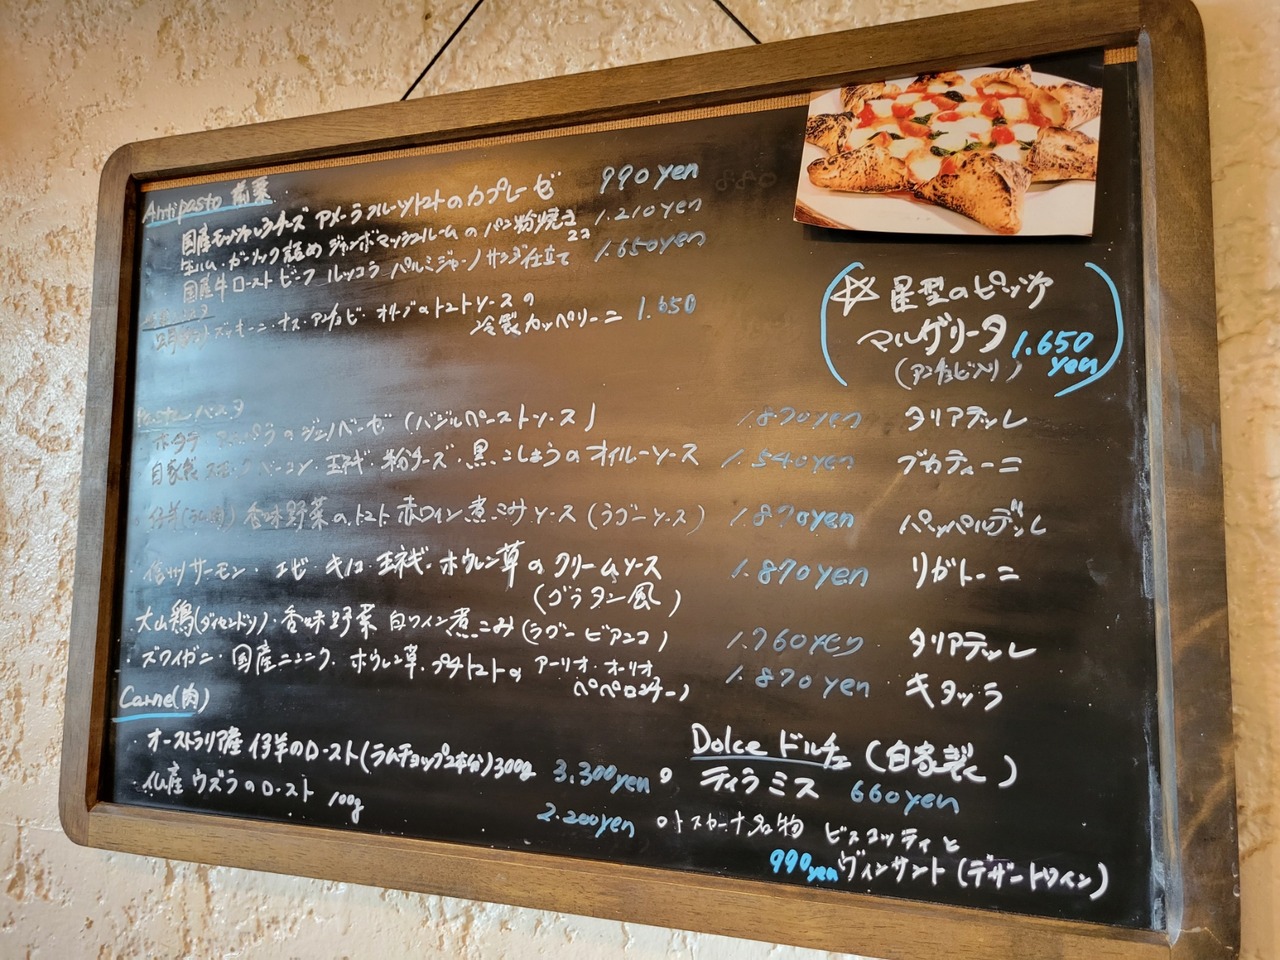 Antipasto 前菜
国産モッツァレラチーズ アメーラフルーツトマトのカプレーゼ 990yen
生ハム・ガーリック詰め ジャンボマッシュルームのパン粉焼き 2コ 1.210yen
国産牛ローストビーフ ルッコラ パルミジャーノ サラダ仕立て 1.650yen
ズッキーニ・ナス・アンチョビ・オリーブのトマトソースの
冷製カッペリーニ 1.650
☆星型のピッツァ
マルゲリータ 1.650
yen
(アンチョビ入り)
Pasta パスタ
ホタテ アスパラのジェノベーゼ (バジルペーストソース) 1.870yen タリアテッレ
自家製 ベーコン・玉ネギ・粉チーズ・黒こしょうのオイルソース 1.540yen ブカティーニ
仔羊(ラム肉) 香味野菜のトマト赤ワイン煮込みソース (ラグーソース) 1.870yen パッパルデッレ
信州サーモン・エビ・キノコ・玉ネギ・ホウレン草のクリームソース 1.870yen リガトーニ
(グラタン風)
大山鶏(ダイセンドリ)・香味野菜 白ワイン煮こみ (ラグー ビアンコ) 1.760yen タリアテッレ
ズワイガニ・国産ニンニク・ホウレン草・プチトマトの アーリオ・オーリオ 1.870yen キタッラ
ペペロンチーノ
Carne(肉)
オーストラリア産 仔羊のロースト(ラムチョップ2本分)300g 3.300yen
仏産 ウズラのロースト 100g 2.200yen
Dolce ドルチェ (自家製)
ティラミス 660yen
トスカーナ名物 ビスコッティと
990yen ヴィンサント (デザートワイン)